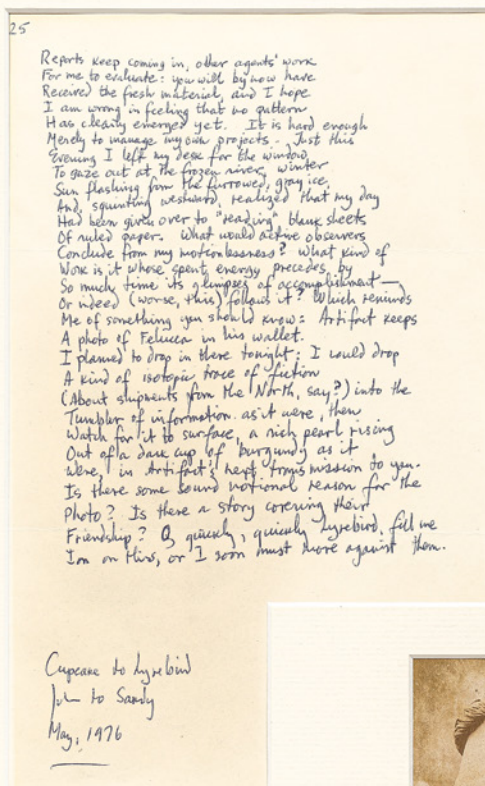 25
Reports keep coming in, other agents' work
For me to evaluate: you will by now have
Received the fresh material, and I hope
I am wrong in feeling that no pattern
Has clearly emerged yet. It is hard enough
Merely to manage my own projects. Just this
Evening I left my desk for the window,
To gaze out at the frozen river, winter
Sun flashing from the furrowed, gray ice,
And, squinting westward, realized that my day
Had been given over to "reading" blank sheets
Of ruled paper. What would active observers
Conclude from my motionlessness? What kind of
Work is it whose spent energy precedes by
So much time its glimpses of accomplishment—
Or indeed (worse, this) follows it? Which reminds
Me of something you should know: Artifact keeps
A photo of Felucca in his wallet.
I planned to drop in there tonight: I could drop
A kind of isotopic trace of fiction
(About shipments from the North, say?) into the
Tumbler of information as it were, then
Watch for it to surface, a rich pearl rising
Out of a dark cup of burgundy as it
Were, in Artifact's next transmission to you.
Is there some sound notional reason for the
Photo? Is there a story covering their
Friendship? O, quickly, quickly Lyrebird, fill me
In on this, or I soon must move against them.
Cupcake to Lyrebird
John to Sandy
May, 1976